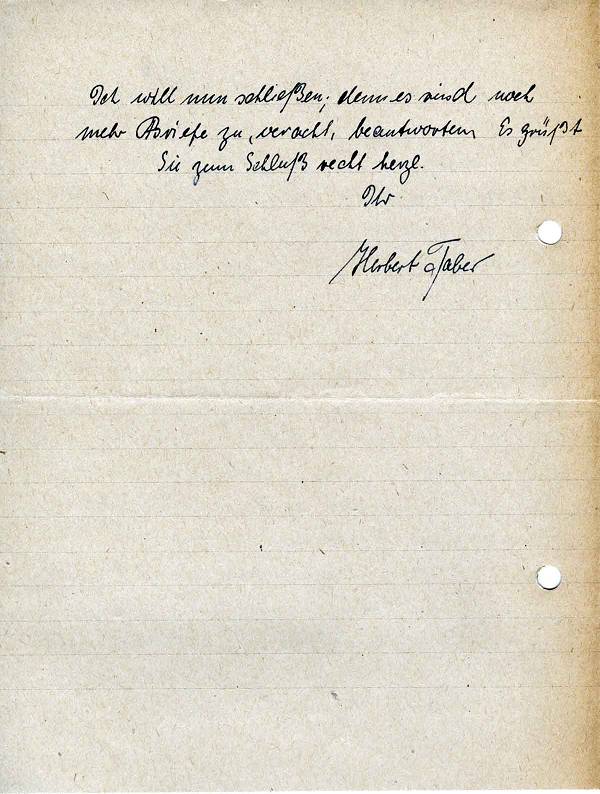 Ich will nun schließen; denn es sind noch
mehr Briefe zu, beantworten Es grüßt
Sie zum Schluß recht herzl.
Ihr
Herbert